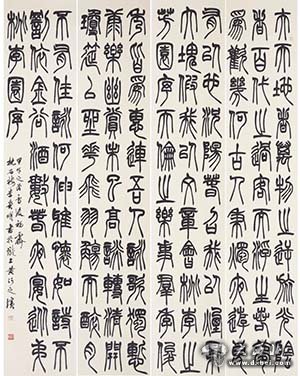 夫天地者萬物之逆旅光陰
者百代之過客而浮生若夢
為歡幾何古人秉燭夜遊良
有以也況陽春召我以煙景
大塊假我以文章會桃李之
芳園序天倫之樂事群季俊
秀皆為惠連吾人詠歌獨慚
康樂幽賞未已高談轉清開
瓊筵以坐花飛羽觴而醉月
不有佳詠何伸雅懷如詩不成
罰依金谷酒數春夜宴從弟
桃李園序